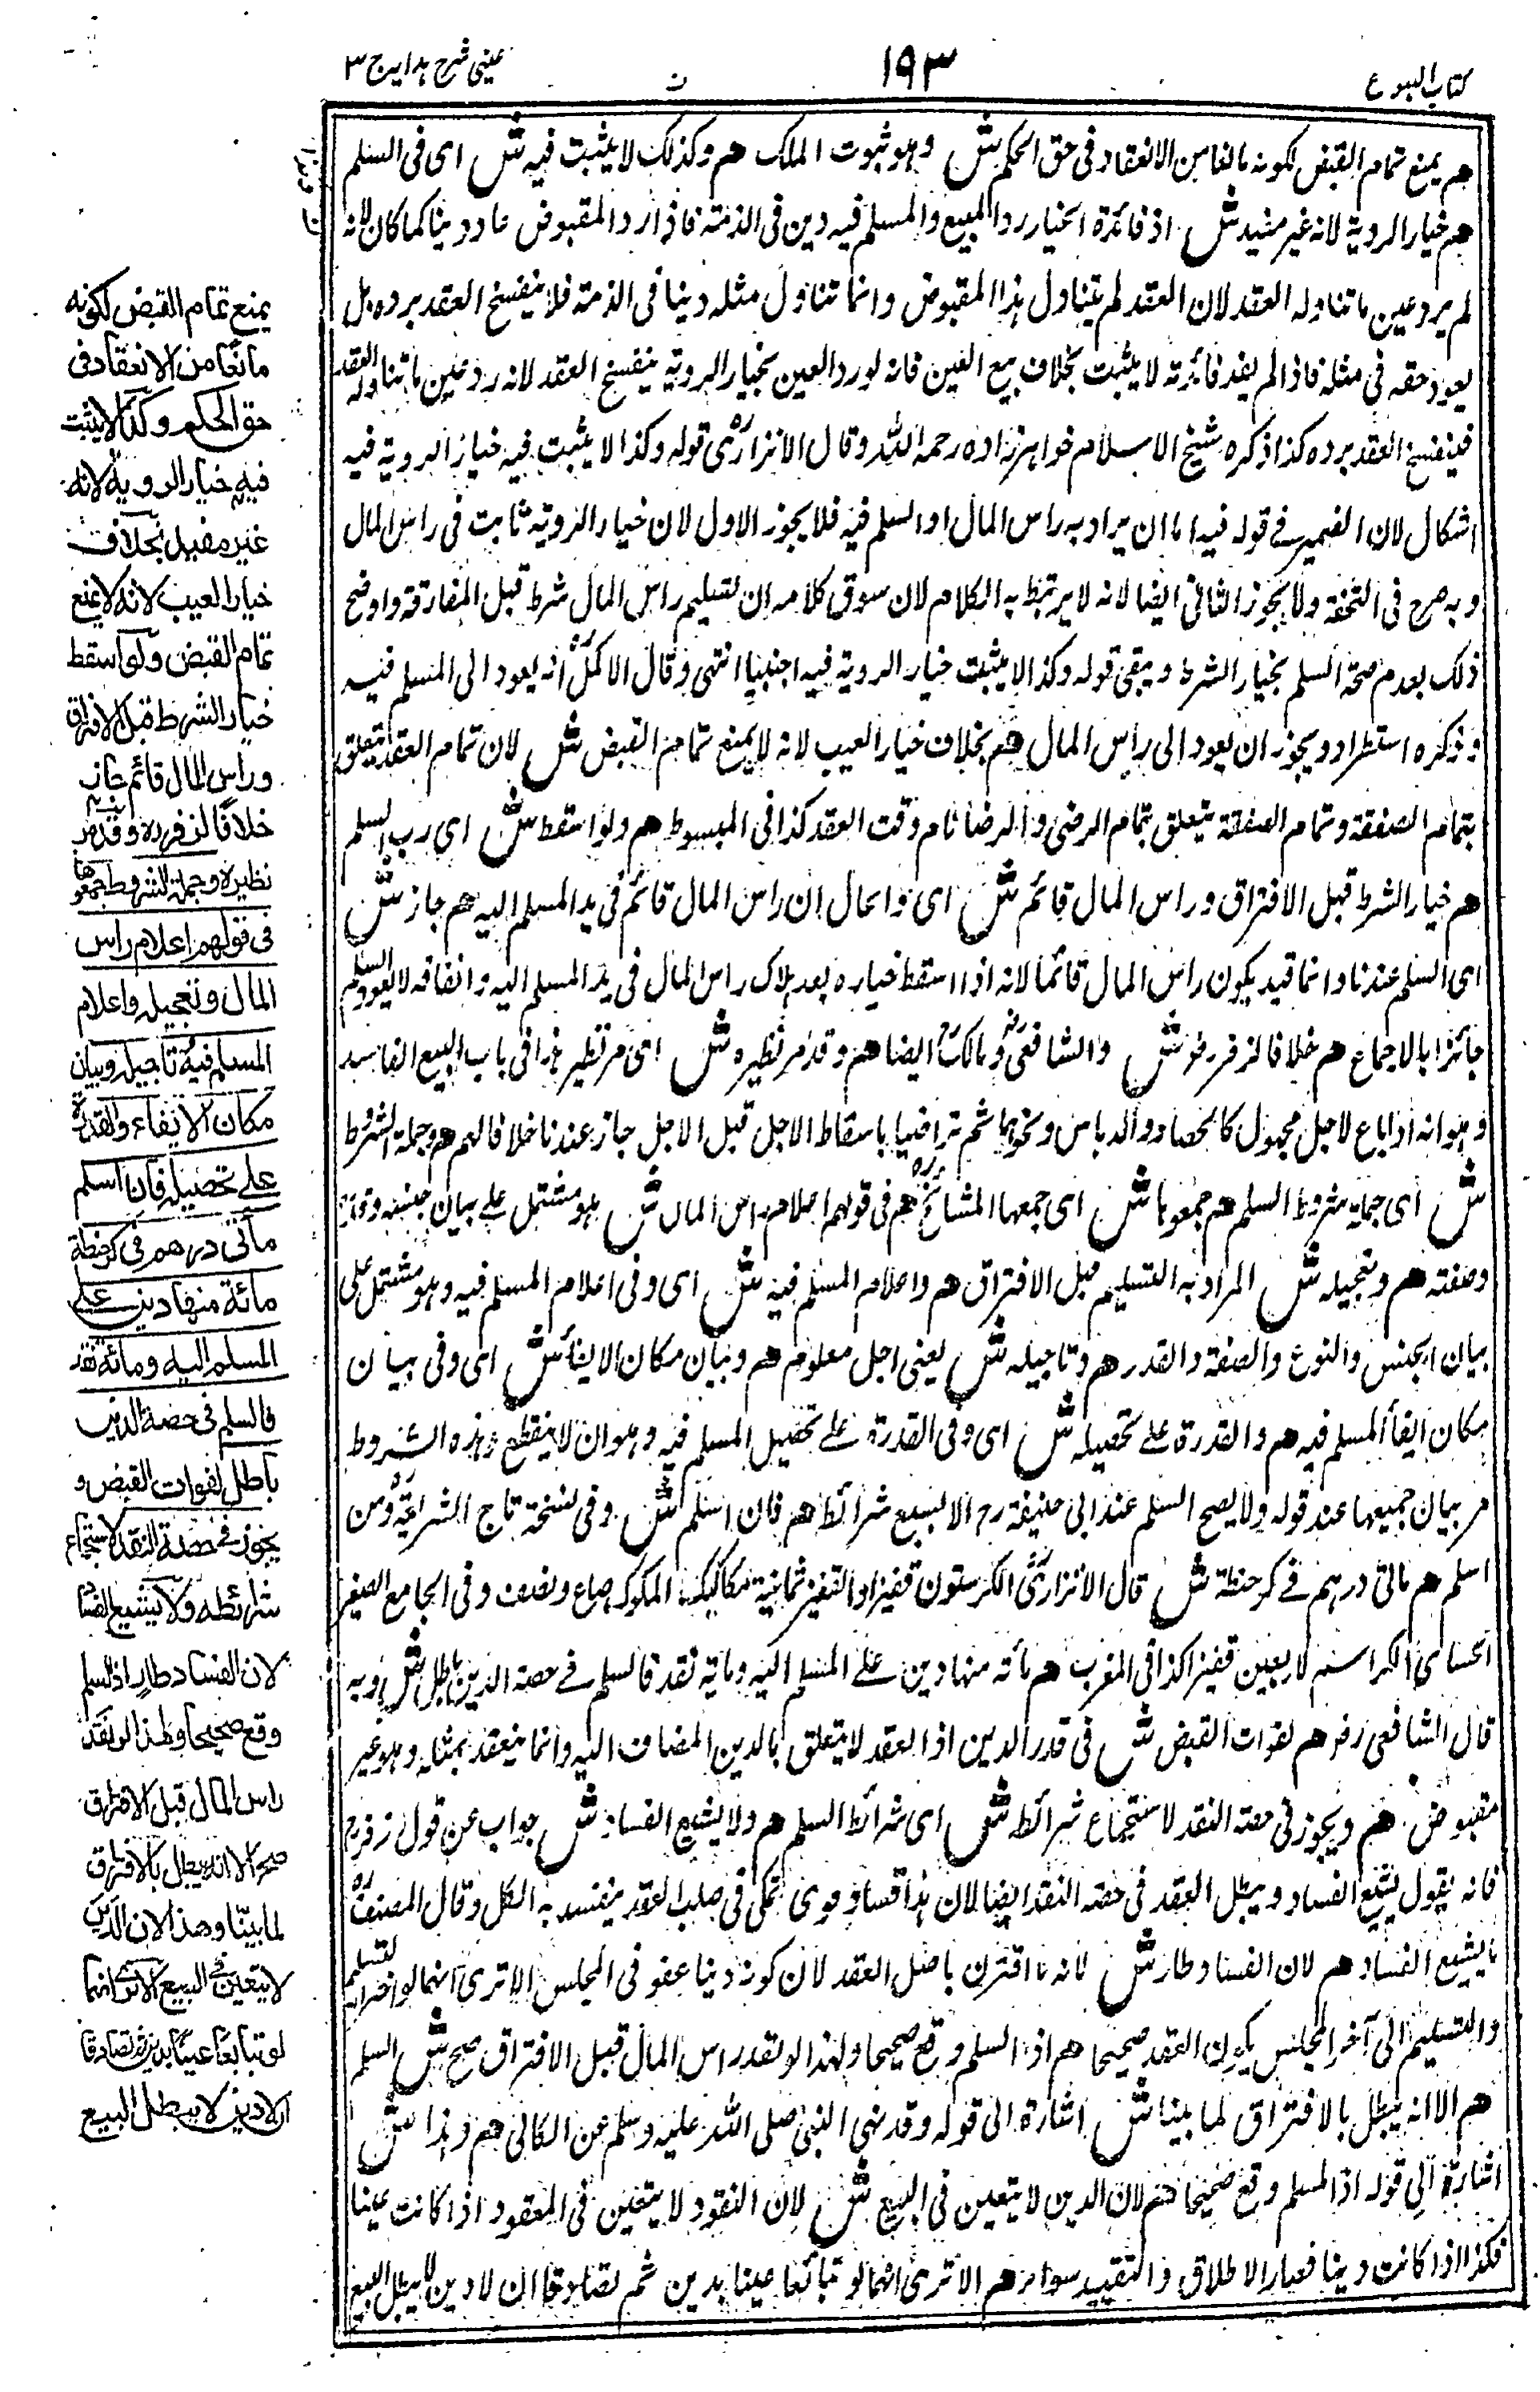 كتاب البيوع
١٩٣
عینی شرح ہدایہ ج ٣
هم يمنع تمام القبض لكونه مانعا من الانعقاد فى حق الحكم ش وہو ثبوت الملك هم وكذلك لا يثبت فيه ش اى فى السلم
هم خيار الروية لانه غير مفيد ش اذ فائدة الخيار رد المبيع والمسلم فيه دين فى الذمة فاذا رد المقبوض عاد دينا كما كان لانه
لم يرد عين ما تناوله العقد لان العقد لم يتناول ہذا المقبوض وانما تناول مثله دينا فى الذمة فلا ينفسخ العقد برده بل
يعود حقه فى مثله فاذا لم يفد فائدته لا يثبت بخلاف بيع العين فانه لو رد العين بخيار الروية ينفسخ العقد لانه رد عين ما تناوله العقد
فينفسخ العقد برده كذا ذكره شيخ الاسلام خواہر زاده رحمه الله وقال الاتزارى قوله وكذا لا يثبت فيه خيار الروية فيه
اشكال لان الضمير فے قوله فيه اما ان يراد به راس المال او السلم فيه فلا يجوز الاول لان خيار الروية ثابت فى راس المال
وبه صرح فى التحفة ولا يجوز الثانى ايضا لانه لا يرتبط به الكلام لان سوق كلامه ان تسليم راس المال شرط قبل المفارقة واوضح
ذلك بعدم صحة السلم بخيار الشرط ويبقى قوله وكذا لا يثبت خيار الروية فيه اجنبيا انتهى وقال الاكمل انه يعود الى المسلم فيه
وذكره استطرادا ويجوز ان يعود الى راس المال هم بخلاف خيار العيب لانه لا يمنع تمام القبض ش لان تمام العقد يتعلق
بتمام الصفقة وتمام الصفقة يتعلق بتمام الرضى والرضا تام وقت العقد كذا فى المبسوط هم ولو اسقط ش اى رب السلم
هم خيار الشرط قبل الافتراق وراس المال قائم ش اى والحال ان راس المال قائم فى يد المسلم اليه هم جاز ش
اى السلم عندنا وانما قيد بكون راس المال قائما لانه اذا اسقط خياره بعد ہلاك راس المال فى يد المسلم اليه وانفاقه لا يعود السلم
جائزا بالاجماع هم خلافا لزفر رح ش والشافعى ومالك ايضا هم وقد مر نظيره ش اى مر نظير ہذا فى باب البيع الفاسد
وہو انه اذا باع لاجل مجهول كالحصاد والدباس ونحوہما ثم تراضيا باسقاط الاجل قبل الاجل جاز عندنا خلافا لهم هم وجملة الشروط
ش اى جملة شروط السلم هم جمعوہا ش اى جمعها المشائخ هم فى قولهم اعلام راس المال ش ہو مشتمل على بيان جنسه وقدره
وصفته هم وتعجيله ش المراد به التسليم قبل الافتراق هم واعلام المسلم فيه ش اى وفى اعلام المسلم فيه وہو مشتمل على
بيان الجنس والنوع والصفة والقدر هم وتاجيله ش يعنى اجل معلوم هم وبيان مكان الايفاء ش اى وفى بيان
مكان ايفاء المسلم فيه هم والقدرة على تحصيله ش اى وفى القدرة علے تحصيل المسلم فيه وہو ان لا ينقطع وہذه الشروط
مر بيان جميعها عند قوله ولا يصح السلم عند ابى حنيفة رح الا بسبع شرائط هم فان اسلم ش وفى نسخة تاج الشريعة ومن
اسلم هم مائتى درہم فے كر حنطة ش قال الاتزارى الكر ستون قفيزا والقفيز ثمانية مكاكيك والمكوك صاع ونصف وفى الجامع الصغير
الحسامى الكر اسم لاربعين قفيزا كذا فى المغرب هم مائة منها دين علے المسلم اليه ومائة نقد فالسلم فے حصة الدين باطل ش وبه
قال الشافعى وزفر هم لفوات القبض ش فى قدر الدين اذ العقد لا يتعلق بالدين المضاف اليه وانما ينعقد بمثله وہو غير
مقبوض هم ويجوز فى حصة النقد لاستجماع شرائط ش اى شرائط السلم هم ولا يشيع الفساد ش جواب عن قول زفر رح
فانه يقول يشيع الفساد ويبطل العقد فى حصة النقد ايضا لان ہذا فساد قوى تمكن فى صلب العقد فيفسد به الكل وقال المصنف
لا يشيع الفساد هم لان الفساد طار ش لانه ما اقترن باصل العقد لان كونه دينا عفو فى المجلس الا ترى انهما لو اخرا التسليم
والتسليم الى آخر المجلس يكون العقد صحيحا هم اذ السلم وقع صحيحا ولہذا لو نقد راس المال قبل الافتراق صح ش السلم
هم الا انه يبطل بالافتراق لما بينا ش اشارة الى قوله وقد نهى النبى صلى الله عليه وسلم عن الكالئ هم وہذا ش
اشارة الى قوله اذ المسلم وقع صحيحا هم لان الدين لا يتعين فى البيع ش لان النقود لا يتعين فى العقود اذا كانت عينا
فكذا اذا كانت دينا فصار الاطلاق والتقييد سواء هم الا ترى انهما لو تبائعا عينا بدين ثم تصادقا ان لا دين لا يبطل البيع
يمنع تمام القبض لكونه
مانعا من الانعقاد فى
حق الحكم وكذا لا يثبت
فيه خيار الروية لانه
غير مفيد بخلاف
خيار العيب لانه لا يمنع
تمام القبض ولو اسقط
خيار الشرط قبل الافتراق
وراس المال قائم جاز
خلافا لزفر ره وقد مر
نظيره وجملة الشروط جمعوها
فى قولهم اعلام راس
المال وتعجيله واعلام
المسلم فيه وتاجيله وبيان
مكان الايفاء والقدرة
على تحصيله فان اسلم
مائتى درهم فى كر حنطة
مائة منها دين على
المسلم اليه ومائة نقد
فالسلم فى حصة الدين
باطل لفوات القبض و
يجوز فى حصة النقد لاستجماع
شرائطه ولا يشيع الفساد
لان الفساد طار اذ السلم
وقع صحيحا ولهذا لو نقد
راس المال قبل الافتراق
صح الا انه يبطل بالافتراق
لما بينا وهذا لان الدين
لا يتعين فى البيع الا ترى انهما
لو تبايعا عينا بدين ثم تصادقا
ان لا دين لا يبطل البيع